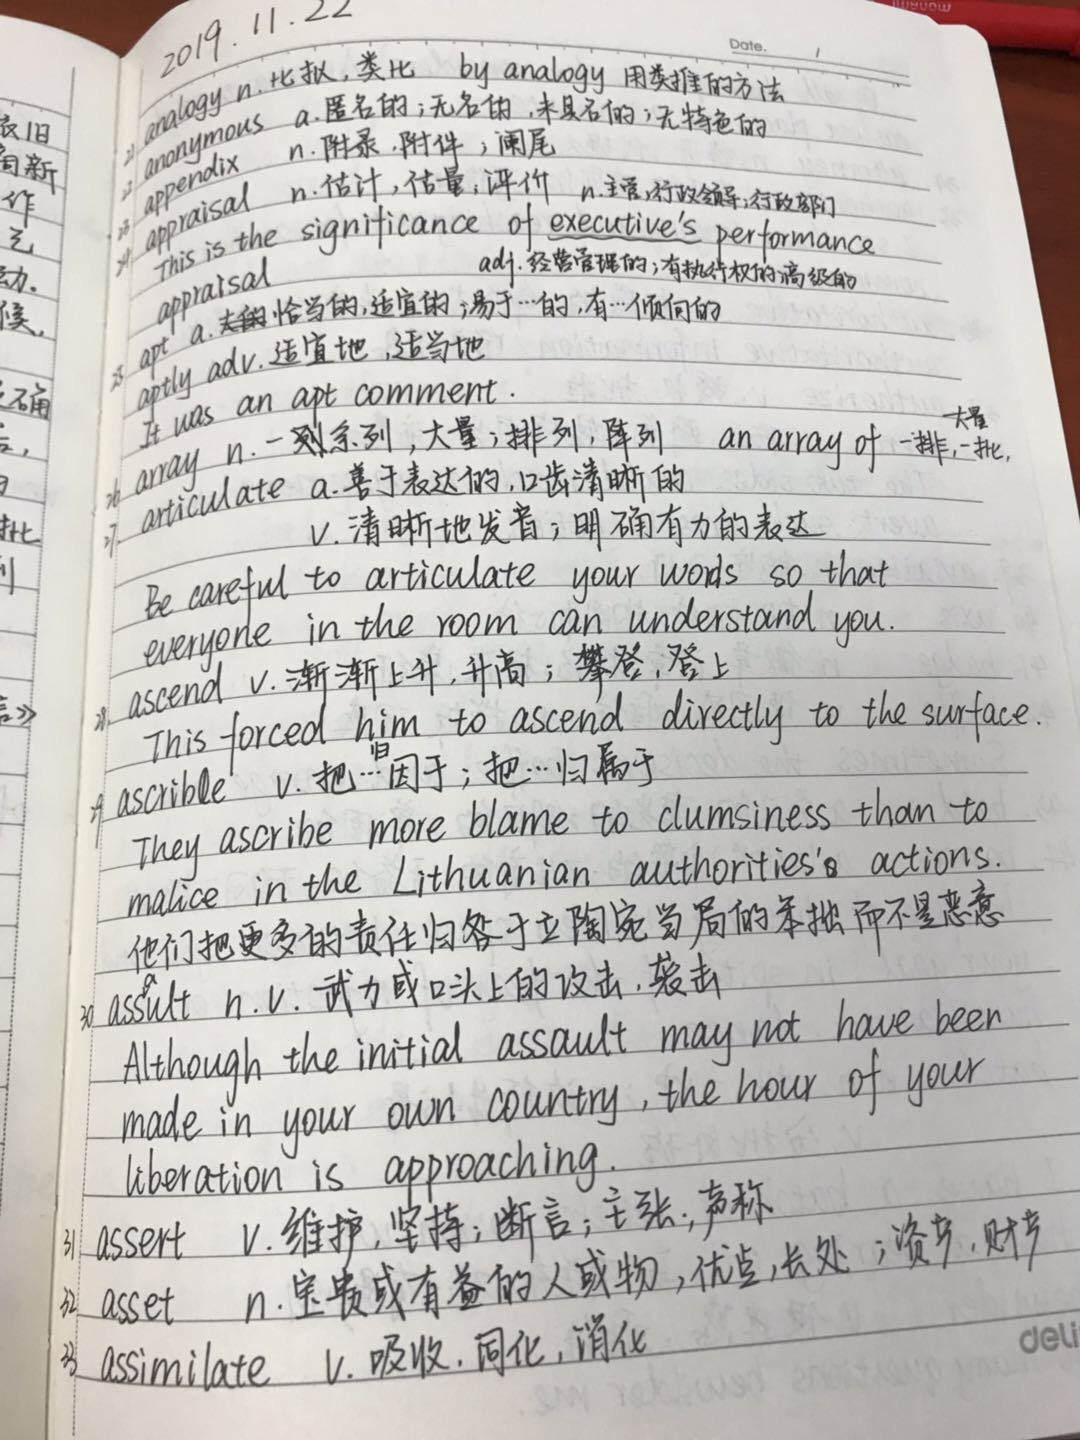 2019.11.22
Date. 1
21 analogy n. 比拟,类比 by analogy 用类推的方法
22 anonymous a.匿名的;无名的,未具名的;无特色的
23 appendix n.附录,附件;阑尾
24 appraisal n.估计,估量,评价 n.主管,行政领导;行政部门
This is the significance of executive's performance
appraisal adj.经营管理的;有执行权的;高级的
25 apt a. 恰当的,适宜的;易于…的,有…倾向的
aptly adv.适宜地,适当地
It was an apt comment.
26 array n.一系列,大量;排列,阵列 an array of 一排,一批,大量
27 articulate a.善于表达的,口齿清晰的
v.清晰地发音;明确有力的表达
Be careful to articulate your words so that
everyone in the room can understand you.
28 ascend v.渐渐上升,升高;攀登,登上
This forced him to ascend directly to the surface.
29 ascribe v.把…归因于;把…归属于
They ascribe more blame to clumsiness than to
malice in the Lithuanian authorities's actions.
他们把更多的责任归咎于立陶宛当局的笨拙而不是恶意
30 assault n.v.武力或口头上的攻击,袭击
Although the initial assault may not have been
made in your own country, the hour of your
liberation is approaching.
31 assert v.维护,坚持;断言;主张;声称
32 asset n.宝贵或有益的人或物,优点,长处;资产,财产
33 assimilate v.吸收,同化,消化
deli